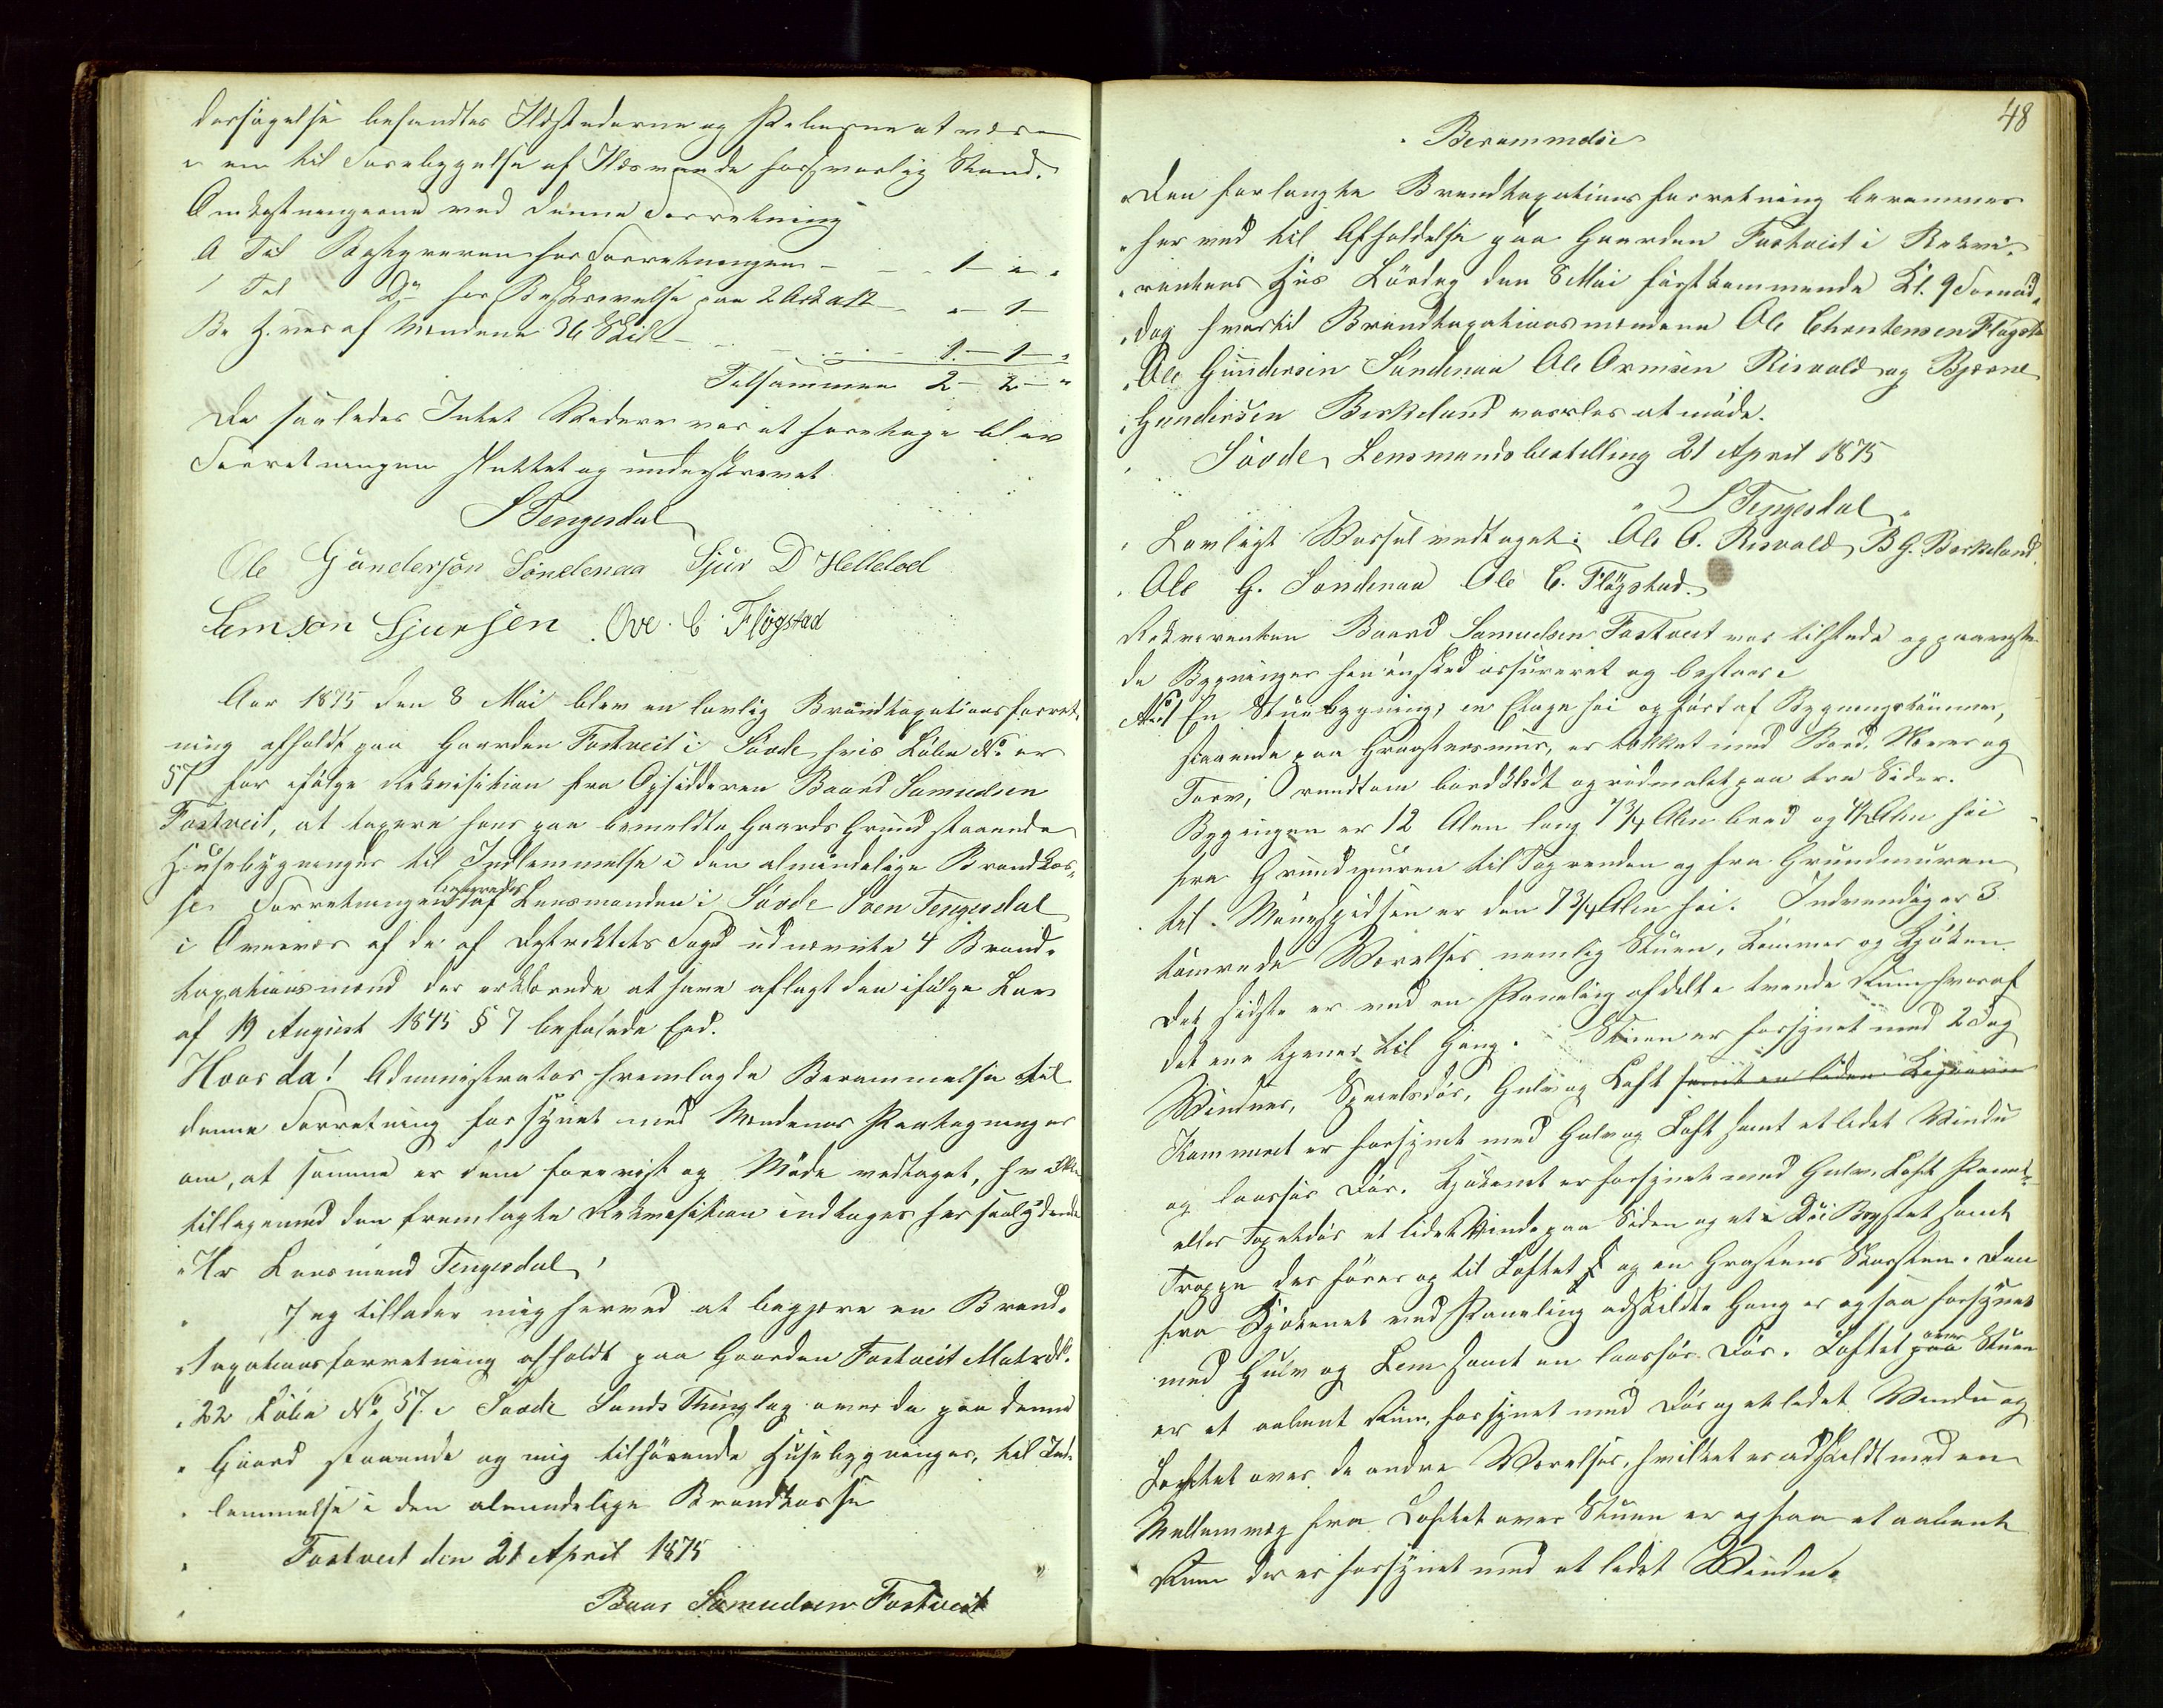 dersøgelse befandtes Ildstederne og Piberne at være
i en til Forebyggelse af Ildsvaade forsvarlig Stand.
Omkostningerne ved denne Forretning
A Til Bestyreren for Forretningen - - - 1 - " - "
Til Do for Beskrivelse paa 2 Ark a 12 - " - 1 -
B 4 Mænd 36 Skil - - - 1 - 1 - "
Tilsammen 2 - 2 - "
Da saaledes Intet Videre var at foretage blev
Forretningen sluttet og underskrevet
S Tengesdal
Ole Gundersøn Søndenaa Sjur D Hellelod
Samson Sjursen Ove C Fløgstad
Aar 1875 den 8 Mai blev en lovlig Brandtaxationsforret-
ning afholdt paa Gaarden Fostveit i Søvde hvis Løbe No er
57 for ifølge Rekvisition fra Opsidderen Baard Samuelsen
Fostveit, at taxere hans paa bemeldte Gaards Grund staaende
Husebygninger til Indlemmelse i den almindelige Brandkas-
se. Forretningen bestyredes af Lensmanden i Søvde Sven Tengesdal
i Overvær af de af Distriktets Foged udnævnte 4 Brand-
taxationsmænd der erklærede at have aflagt den ifølge Lov
af 19 August 1845 § 7 befalede Eed.
Hvorda! Administrator fremlagde Berammelse til
denne Forretning forsynet med Mændenes Paategninger
om, at samme er dem forevist og Møde vedtaget, hvilke
tilligemed den fremlagte Rekvisition indtages her saalydende
"Hr Lensmand Tengesdal!
" Jeg tillader mig herved at begjære en Brand-
"taxationsforretning afholdt paa Gaarden Fostveit Matr No
"22 Løbe No 57 i Søvde Sands Thinglag over de paa denne
" Gaard staaende og mig tilhørende Husebygninger, til Ind-
" lemmelse i den almindelige Brandkasse
" Fostveit den 21 April 1875
" Baar Samuelsen Fostveit "
48
" Berammelse
"Den forlangte Brandtaxationsforretning berammes
"herved til Afholdelse paa Gaarden Fostveit i Rekvi-
"rentens Hus Lørdag den 8 Mai førstkommende Kl. 9 Formid-
"dag hvortil Brandtaxationsmændene Ole Christensen Fløgsta
"Ole Gundersen Søndenaa Ole Ormsen Risvold og Bjørne
"Gundersen Birkeland varsles at møde.
" Søvde Lensmandsbestilling 21 April 1875
" S Tengesdal "
" Lovligt Varsel vedtaget: Ole O. Risvold B G. Birkeland
" Ole G. Søndenaa Ole C. Fløgstad.
Rekvirenten Baard Samuelsen Fostveit var tilstede og paaviste
de Bygninger han ønsked assureret og bestaar i
No 1 En Stuebygning, en Etage høi og ført af Bygningstømmer,
staaende paa Graasteensmur, er tækket med Bord, Næver og
Torv, rundtom bordklædt og rødmalet paa tre Sider.
Bygingen er 12 Alen lang 7 3/4 Alen bred og 4 1/2 Alen høi
fra Grundmuren til Tagrenden og fra Grundmuren
til Mønespidsen er den 7 3/4 Alen høi. Indvendig er 3
tømrede Værelser nemlig Stuen, Kammer og Kjøken
Det sidste er ved en Paneling afdelt i tvende Rum hvoraf
det ene tjener til Gang. Stuen er forsynet med 2 Fag
Vinduer, Speielsdør, Gulv og Loft samt en liden
Kammeret er forsynet med Gulv og Loft samt et lidet Vindu
og laasfør Dør. Kjøkenet er forsynet med Gulv, Loft Panel-
eller Tapetdør et lidet Vindu paa Siden og et i Bryst samt
Trappe der fører op til Loftet og en Graasteens Skorsteen. Den
fra Kjøkenet ved Paneling adskildte Gang er ogsaa forsynet
med Gulv og Lem samt en laasfør Dør. Loftet paa over Stuen
er et aabent Rum, forsynet med Dør og et lidet Vindu og
Loftet over de andre Værelser, hvilket er adskildt med en
Mellemvæg fra Loftet over Stuen er ogsaa et aabent
Rum der er forsynet med et lidet Vindu.